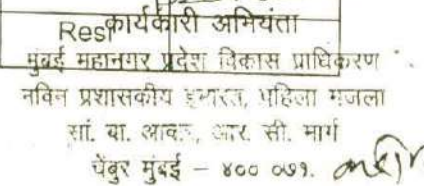 Res कार्यकारी अभियंता
मुंबई महानगर प्रदेश विकास प्राधिकरण
नविन प्रशासकीय इमारत, पहिला मजला
सां. बा. आवार, आर. सी. मार्ग
चेंबुर मुंबई – ४०० ०७१.